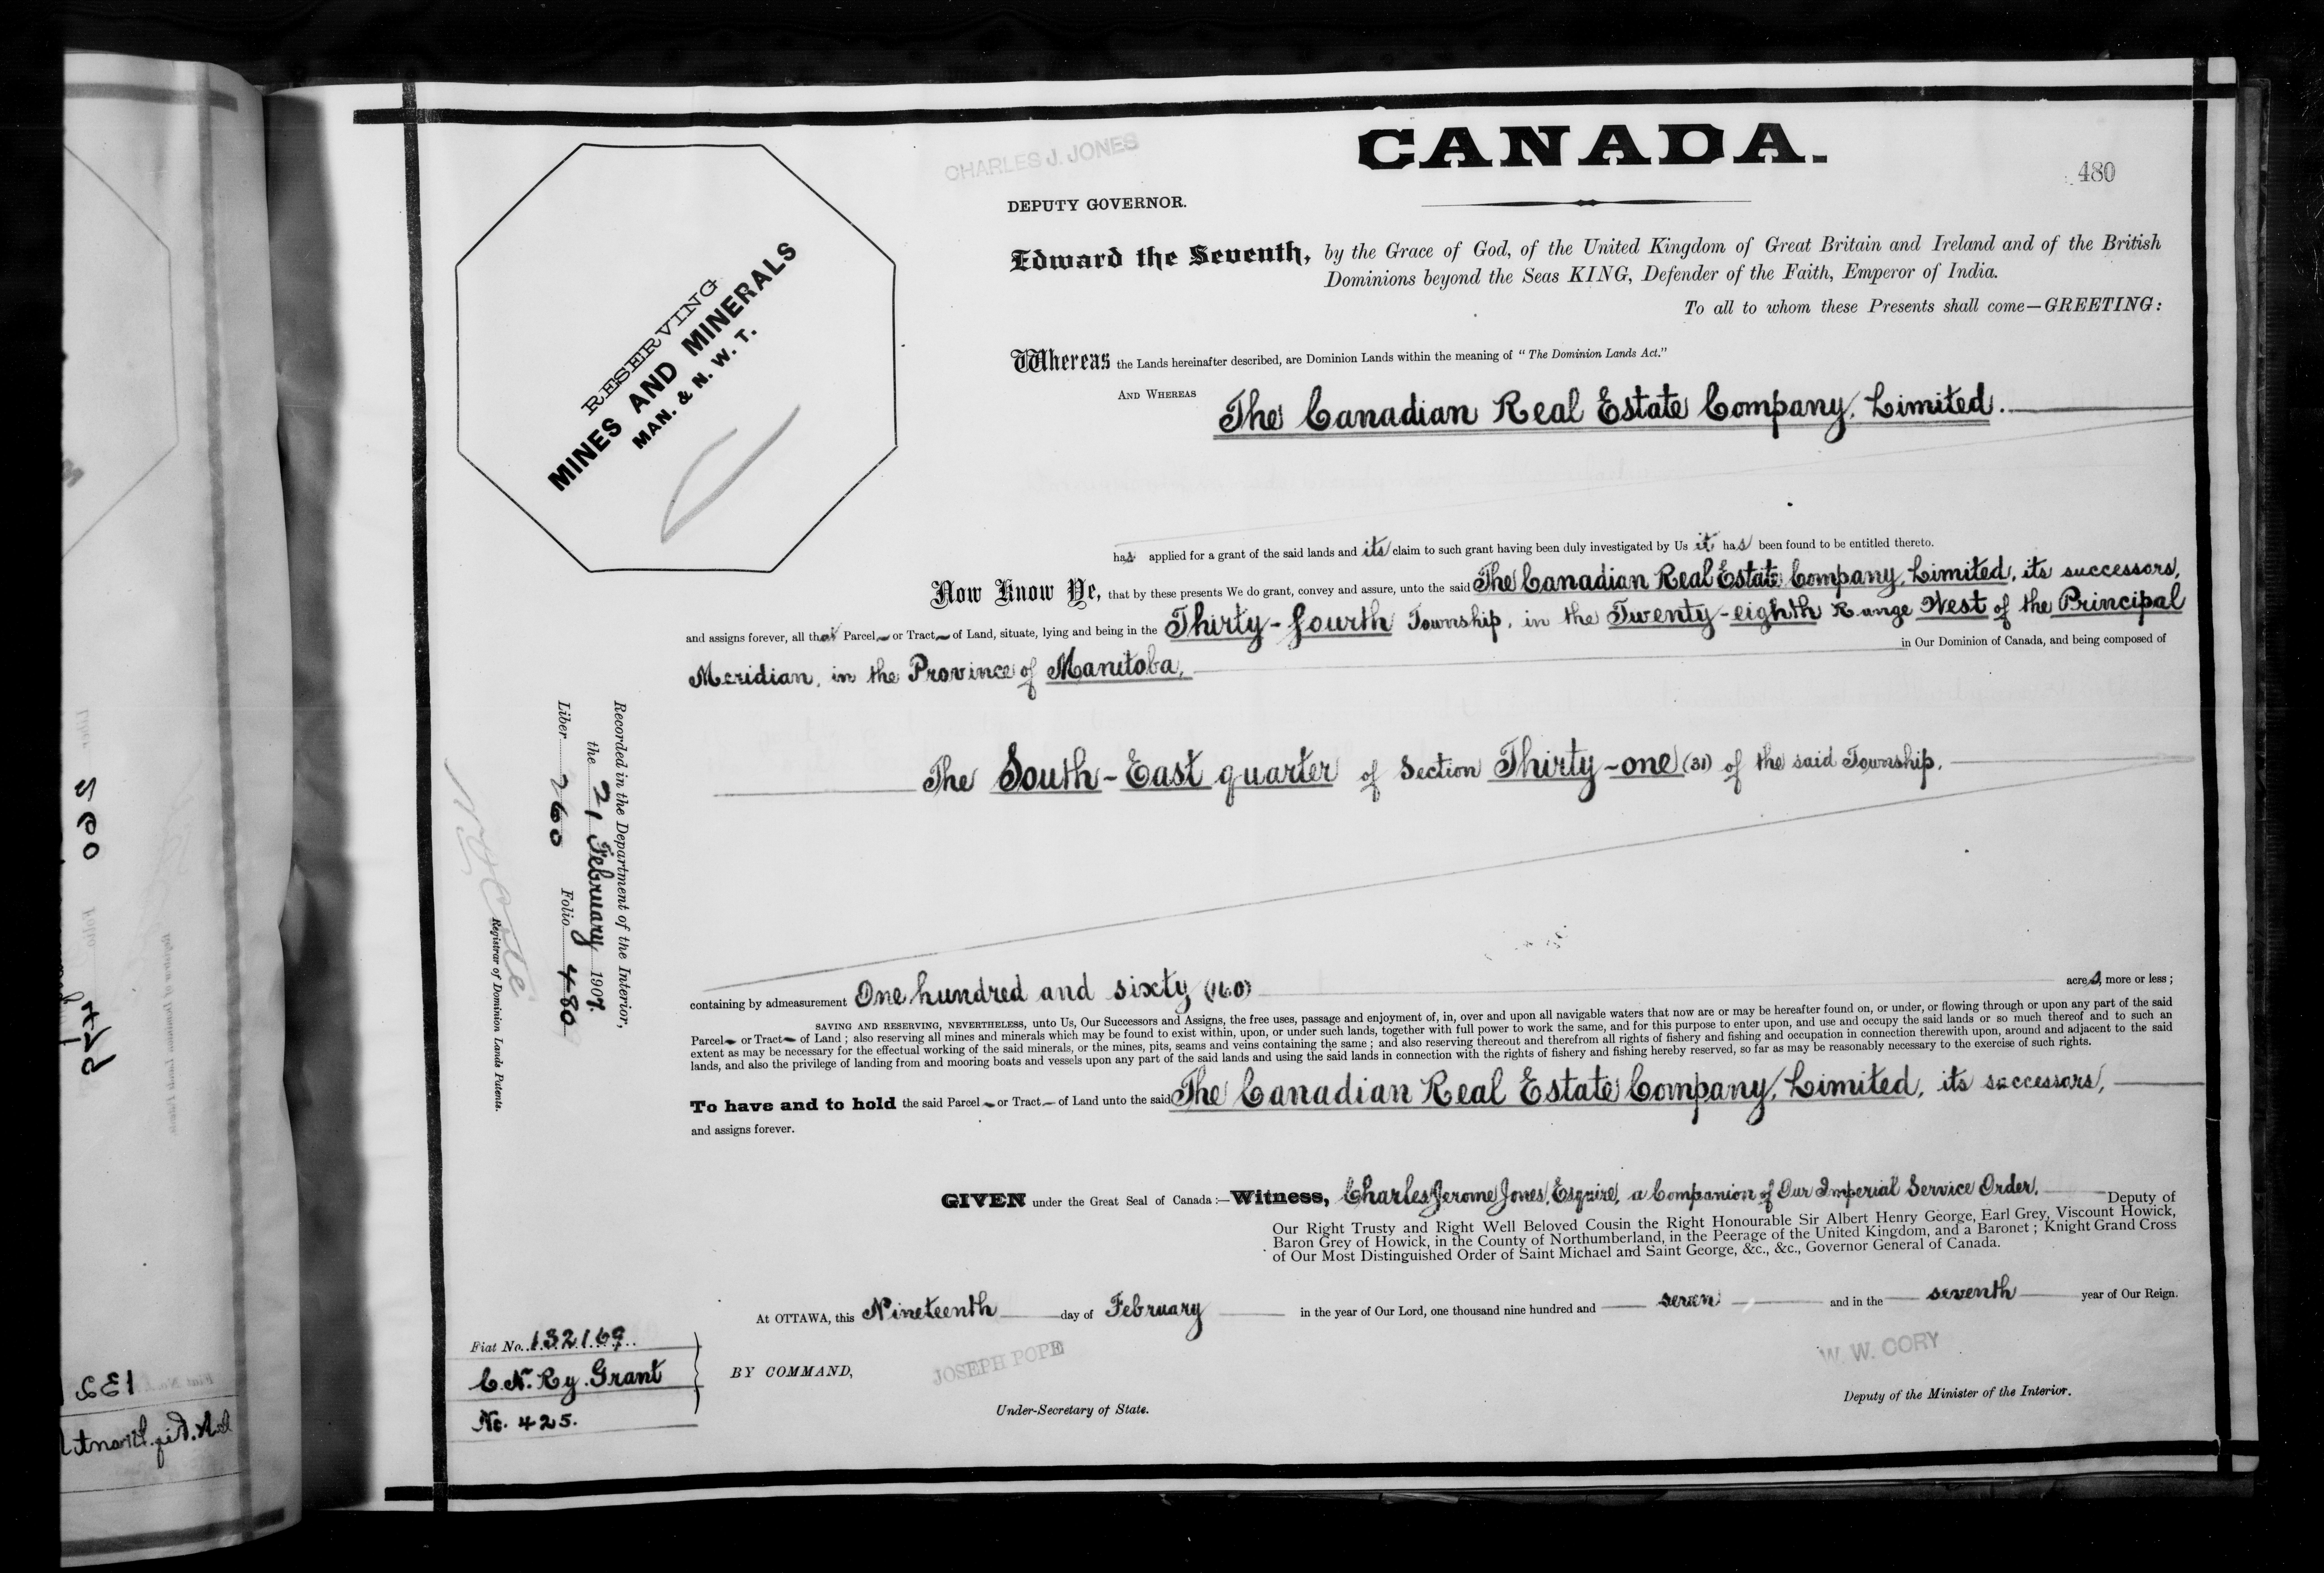 CHARLES J. JONES
CANADA.
480
DEPUTY GOVERNOR.
RESERVING
MINES AND MINERALS
MAN. & N. W. T.
Edward the Seventh, by the Grace of God, of the United Kingdom of Great Britain and Ireland and of the British
Dominions beyond the Seas KING, Defender of the Faith, Emperor of India.
To all to whom these Presents shall come—GREETING:
Whereas the Lands hereinafter described, are Dominion Lands within the meaning of "The Dominion Lands Act."
AND WHEREAS The Canadian Real Estate Company, Limited.
has applied for a grant of the said lands and its claim to such grant having been duly investigated by Us it has been found to be entitled thereto.
Now Know Ye, that by these presents We do grant, convey and assure, unto the said The Canadian Real Estate Company, Limited, its successors,
and assigns forever, all that Parcel or Tract of Land, situate, lying and being in the Thirty-fourth Township, in the Twenty-eighth Range West of the Principal
in Our Dominion of Canada, and being composed of
Meridian, in the Province of Manitoba,
The South-East quarter of Section Thirty-one (31) of the said Township.
containing by admeasurement One hundred and sixty (160) acres, more or less;
SAVING AND RESERVING, NEVERTHELESS, unto Us, Our Successors and Assigns, the free uses, passage and enjoyment of, in, over and upon all navigable waters that now are or may be hereafter found on, or under, or flowing through or upon any part of the said
Parcel or Tract of Land; also reserving all mines and minerals which may be found to exist within, upon, or under such lands, together with full power to work the same, and for this purpose to enter upon, and use and occupy the said lands or so much thereof and to such an
extent as may be necessary for the effectual working of the said minerals, or the mines, pits, seams and veins containing the same; and also reserving thereout and therefrom all rights of fishery and fishing and occupation in connection therewith upon, around and adjacent to the said
lands, and also the privilege of landing from and mooring boats and vessels upon any part of the said lands and using the said lands in connection with the rights of fishery and fishing hereby reserved, so far as may be reasonably necessary to the exercise of such rights.
To have and to hold the said Parcel or Tract of Land unto the said The Canadian Real Estate Company, Limited, its successors,
and assigns forever.
GIVEN under the Great Seal of Canada:—Witness, Charles Jerome Jones, Esquire, a Companion of Our Imperial Service Order, Deputy of
Our Right Trusty and Right Well Beloved Cousin the Right Honourable Sir Albert Henry George, Earl Grey, Viscount Howick,
Baron Grey of Howick, in the County of Northumberland, in the Peerage of the United Kingdom, and a Baronet; Knight Grand Cross
of Our Most Distinguished Order of Saint Michael and Saint George, &c., &c., Governor General of Canada.
At OTTAWA, this Nineteenth day of February in the year of Our Lord, one thousand nine hundred and seven and in the seventh year of Our Reign.
BY COMMAND,
JOSEPH POPE
Under-Secretary of State.
W. W. CORY
Deputy of the Minister of the Interior.
Fiat No. 132169
C. N. Ry. Grant
No. 425.
Recorded in the Department of the Interior,
the 21 February 1907.
Liber 260 Folio 480
Registrar of Dominion Lands Patents.